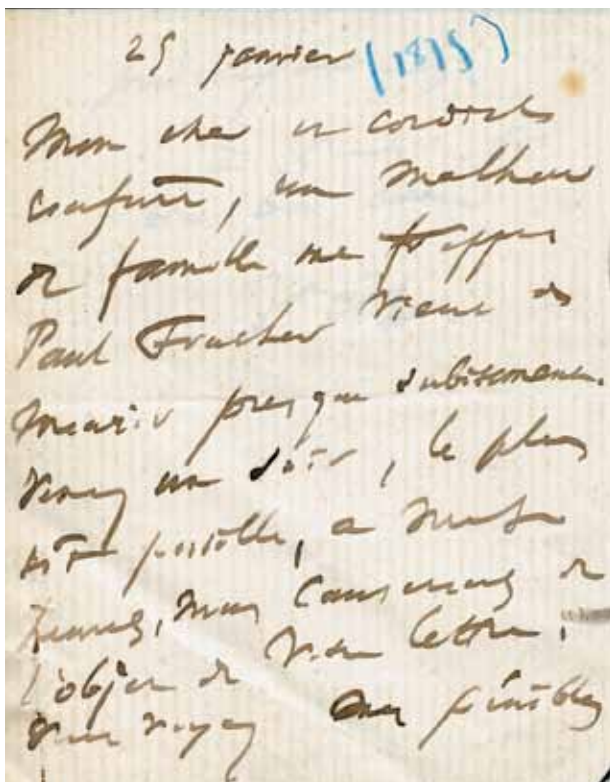 25 janvier (1875)
Mon cher et cordial
confrère, un malheur
de famille me frappe,
Paul Foucher vient de
mourir presque subitement.
Venez un soir, le plus
tôt possible, à neuf
heures, nous causerons de
l'objet de votre lettre.
Vous voyez pénibles